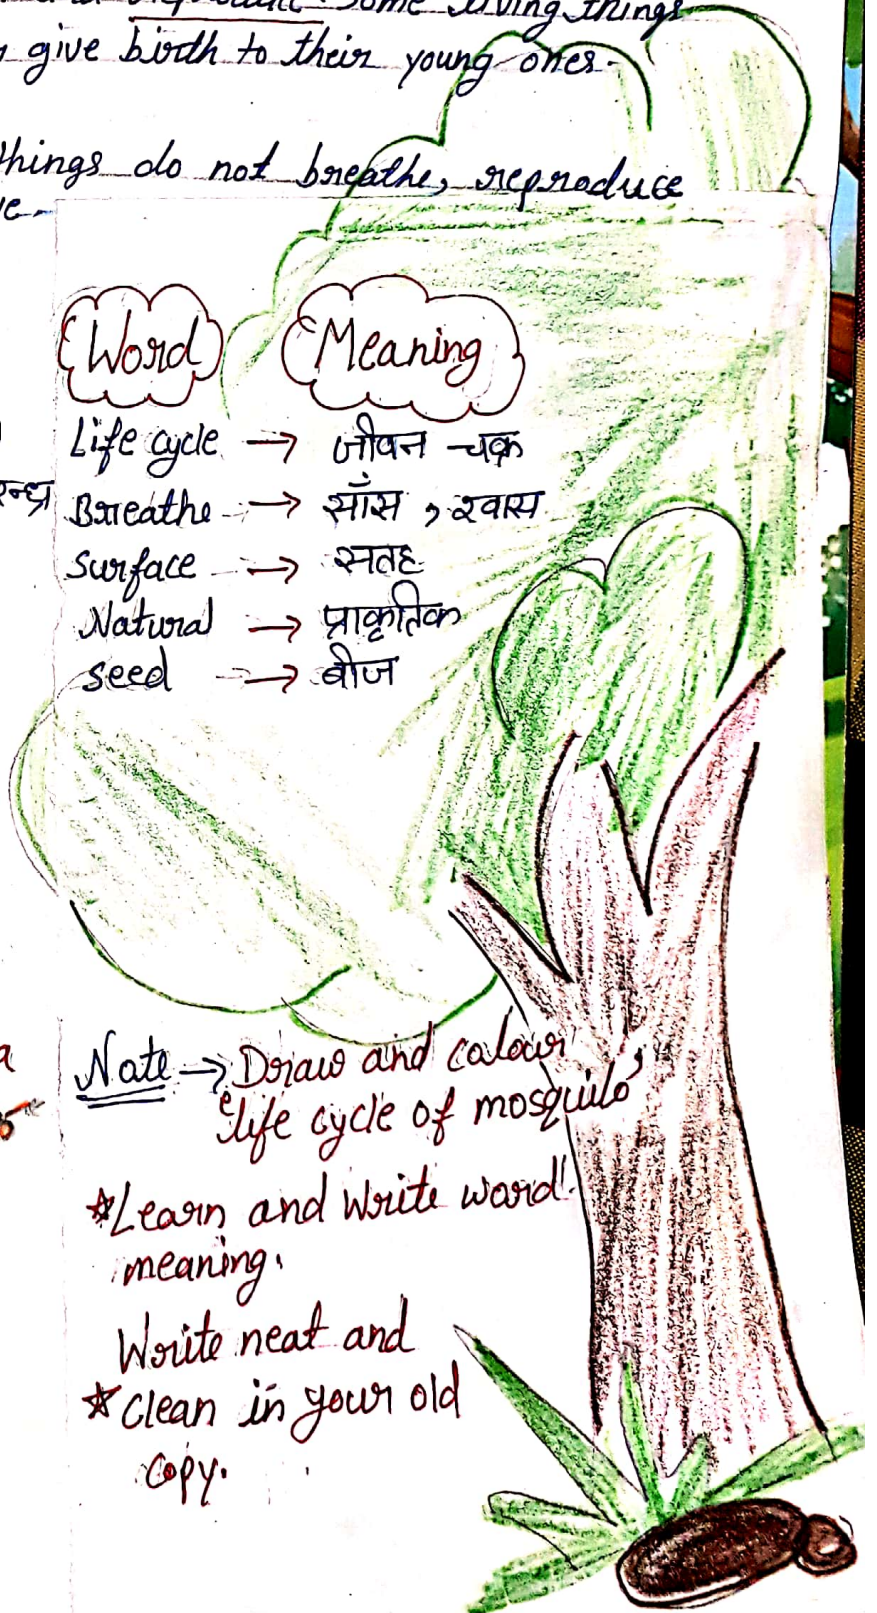 Some living things
give birth to their young ones.
things do not breathe, reproduce
Word Meaning
Life cycle → जीवन-चक्र
Breathe → साँस, श्वास
Surface → सतह
Natural → प्राकृतिक
seed → बीज
Note → Draw and colour
life cycle of mosquito
*Learn and write word
meaning.
Write neat and
* Clean in your old
copy.